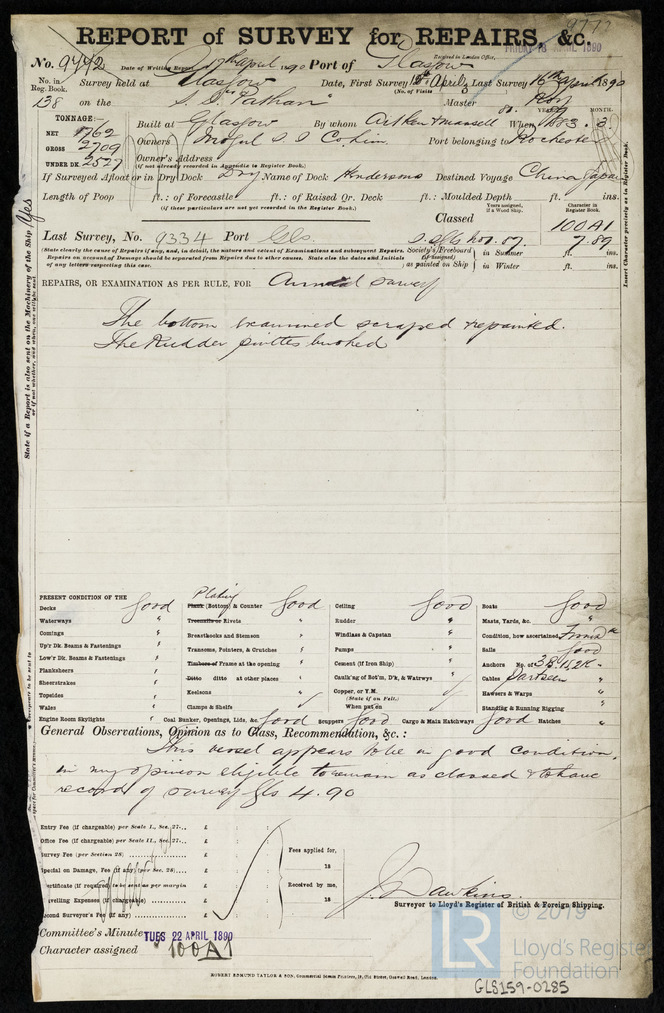 9777
REPORT of SURVEY for REPAIRS, &c.
Received in London Office,
FRIDAY 18 APRIL 1890
No. 9442 Date of Writing Report 17th April 1890 Port of Glasgow
No. in Reg. Book. Survey held at Glasgow Date, First Survey 15th April Last Survey 16th April 1890
(No. of Visits
138 on the S.S. "Pathan" Master Roy
TONNAGE:— YEAR. MONTH.
NET 1762 Built at Glasgow By whom Aitken & Mansell When 1883. 3.
GROSS 2709 Owners Mogul S S Co, Lim. Port belonging to Rochester
UNDER DK. 2527 Owner's Address
(if not already recorded in Appendix to Register Book.)
If Surveyed Afloat or in Dry Dock Dry Name of Dock Hendersons Destined Voyage China Japan
Length of Poop ft.: of Forecastle ft.: of Raised Qr. Deck ft.: Moulded Depth ft. ins.
(if these particulars are not yet recorded in the Register Book.)
Years assigned, if a Wood Ship. Character in Register Book.
Classed 100A1
Last Survey, No. 9334 Port Gls 7.89
(State clearly the cause of Repairs if any, and, in detail, the nature and extent of Examinations and subsequent Repairs.
Repairs on account of Damage should be separated from Repairs due to other causes. State also the dates and Initials
of any letters respecting this case.)
Society's Freeboard (if assigned) as painted on Ship in Summer ft. ins.
in Winter ft. ins.
Insert Character precisely as in Register Book.
State if a Report is also sent on the Machinery of the Ship Yes
or if not whether, and when, one will be sent
REPAIRS, OR EXAMINATION AS PER RULE, FOR Annual survey
The bottom examined scraped repainted.
The Rudder pintles bushed
PRESENT CONDITION OF THE
Decks good
Waterways "
Comings "
Up'r Dk. Beams & Fastenings "
Low'r Dk. Beams & Fastenings "
Planksheers "
Sheerstrakes "
Topsides "
Wales "
Engine Room Skylights "
Plating
Plank (Bottom) & Counter good
Treenails or Rivets "
Breasthooks and Stemson "
Transoms, Pointers, & Crutches "
Timbers of Frame at the opening "
Ditto ditto at other places "
Keelsons "
Clamps & Shelfs
Coal Bunker, Openings, Lids, &c. good
Ceiling good
Rudder "
Windlass & Capstan "
Pumps "
Cement (if Iron Ship) "
Caulk'g of Bot'm, D'k, & Watrwys
Copper, or Y.M.
(State if on Felt.)
When put on
Scuppers good Cargo & Main Hatchways good
Boats good
Masts, Yards, &c. "
Condition, how ascertained From dk
Sails good
Anchors No. of 3B, 1S, 2K.
Cables Part seen
Hawsers & Warps "
Standing & Running Rigging "
Hatches "
General Observations, Opinion as to Class, Recommendation, &c. :
This vessel appears to be in good condition,
in my opinion eligible to remain as classed & to have
record of survey Gls 4.90
Entry Fee (if chargeable) per Scale I., Sec. 27... £ : :
Office Fee (if chargeable) per Scale II., Sec. 27... £ : :
Survey Fee (per Section 28) £ : :
Special on Damage, Fee (if any) (per Sec. 28).. £ : :
Certificate (if required) to be sent as per margin £ : :
Travelling Expenses (if chargeable) £ : :
Second Surveyor's Fee (if any) £ : :
Fees applied for,
18
Received by me,
18
J. Dawkins.
Surveyor to Lloyd's Register of British & Foreign Shipping.
Committee's Minute TUES 22 APRIL 1890
Character assigned 100A1
ROBERT EDMUND TAYLOR & SON, Commercial Steam Printers, 19, Old Street, Goswell Road, London.
© 2019
LR
Lloyd's Register
Foundation
GLS159-0285